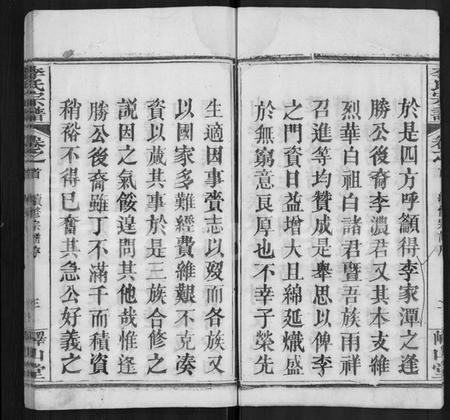 於是四方呼籲得李家潭之逢
勝公後裔李濃君又其本支維
烈華白祖白諸君暨吾族雨祥
召進等均贊成是舉思以俾李
之門資日益增大且綿延熾盛
於無窮意良厚也不幸子榮先
李氏宗譜
卷之首
續修宗譜序
三
嶧山堂
生適因事賫志以歿而各族又
以國家多難經費維艱不克湊
資以蕆其事於是三族合修之
説因之氣餒遑問其他哉惟逢
勝公後裔雖丁不滿千而積資
稍裕不得已奮其急公好義之